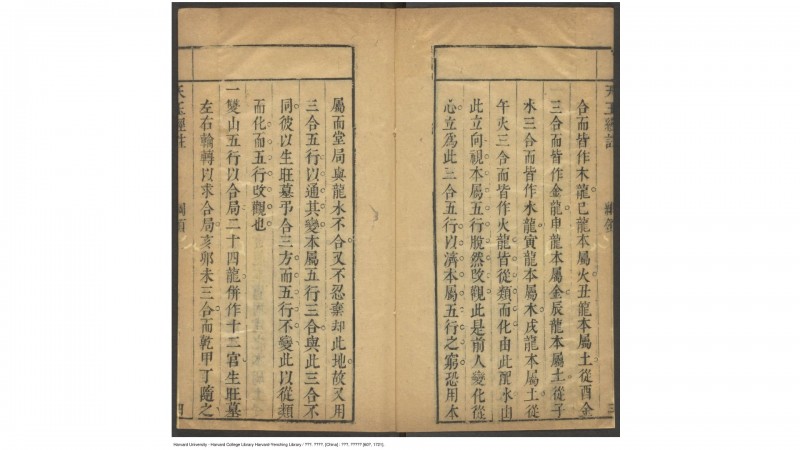 合而皆作木龍巳龍本屬火丑龍本屬土從酉金
三合而皆作金龍申龍本屬金辰龍本屬土從子
水三合而皆作水龍寅龍本屬木戌龍本屬土從
午火三合而皆作火龍皆從類而化由此配水山
此立向視本屬五行脫然改觀此是前人變化從
心立為此三合五行以濟本屬五行之窮恐用本
三
天玉經註
屬而堂局與龍水不合又不忍棄却此地故又用
三合五行以通其變本屬五行三合與此三合不
同彼以生旺墓弔合三方而五行不變此以從類
而化而五行改觀也
一雙山五行以合局二十四龍併作十二宮生旺墓
左右輪轉以求合局亥卯未三合而乾甲丁隨之
天玉經註
四
Harvard University - Harvard College Library Harvard-Yenching Library / ???. ????. [China] : ???, ????? [60?, 1721].